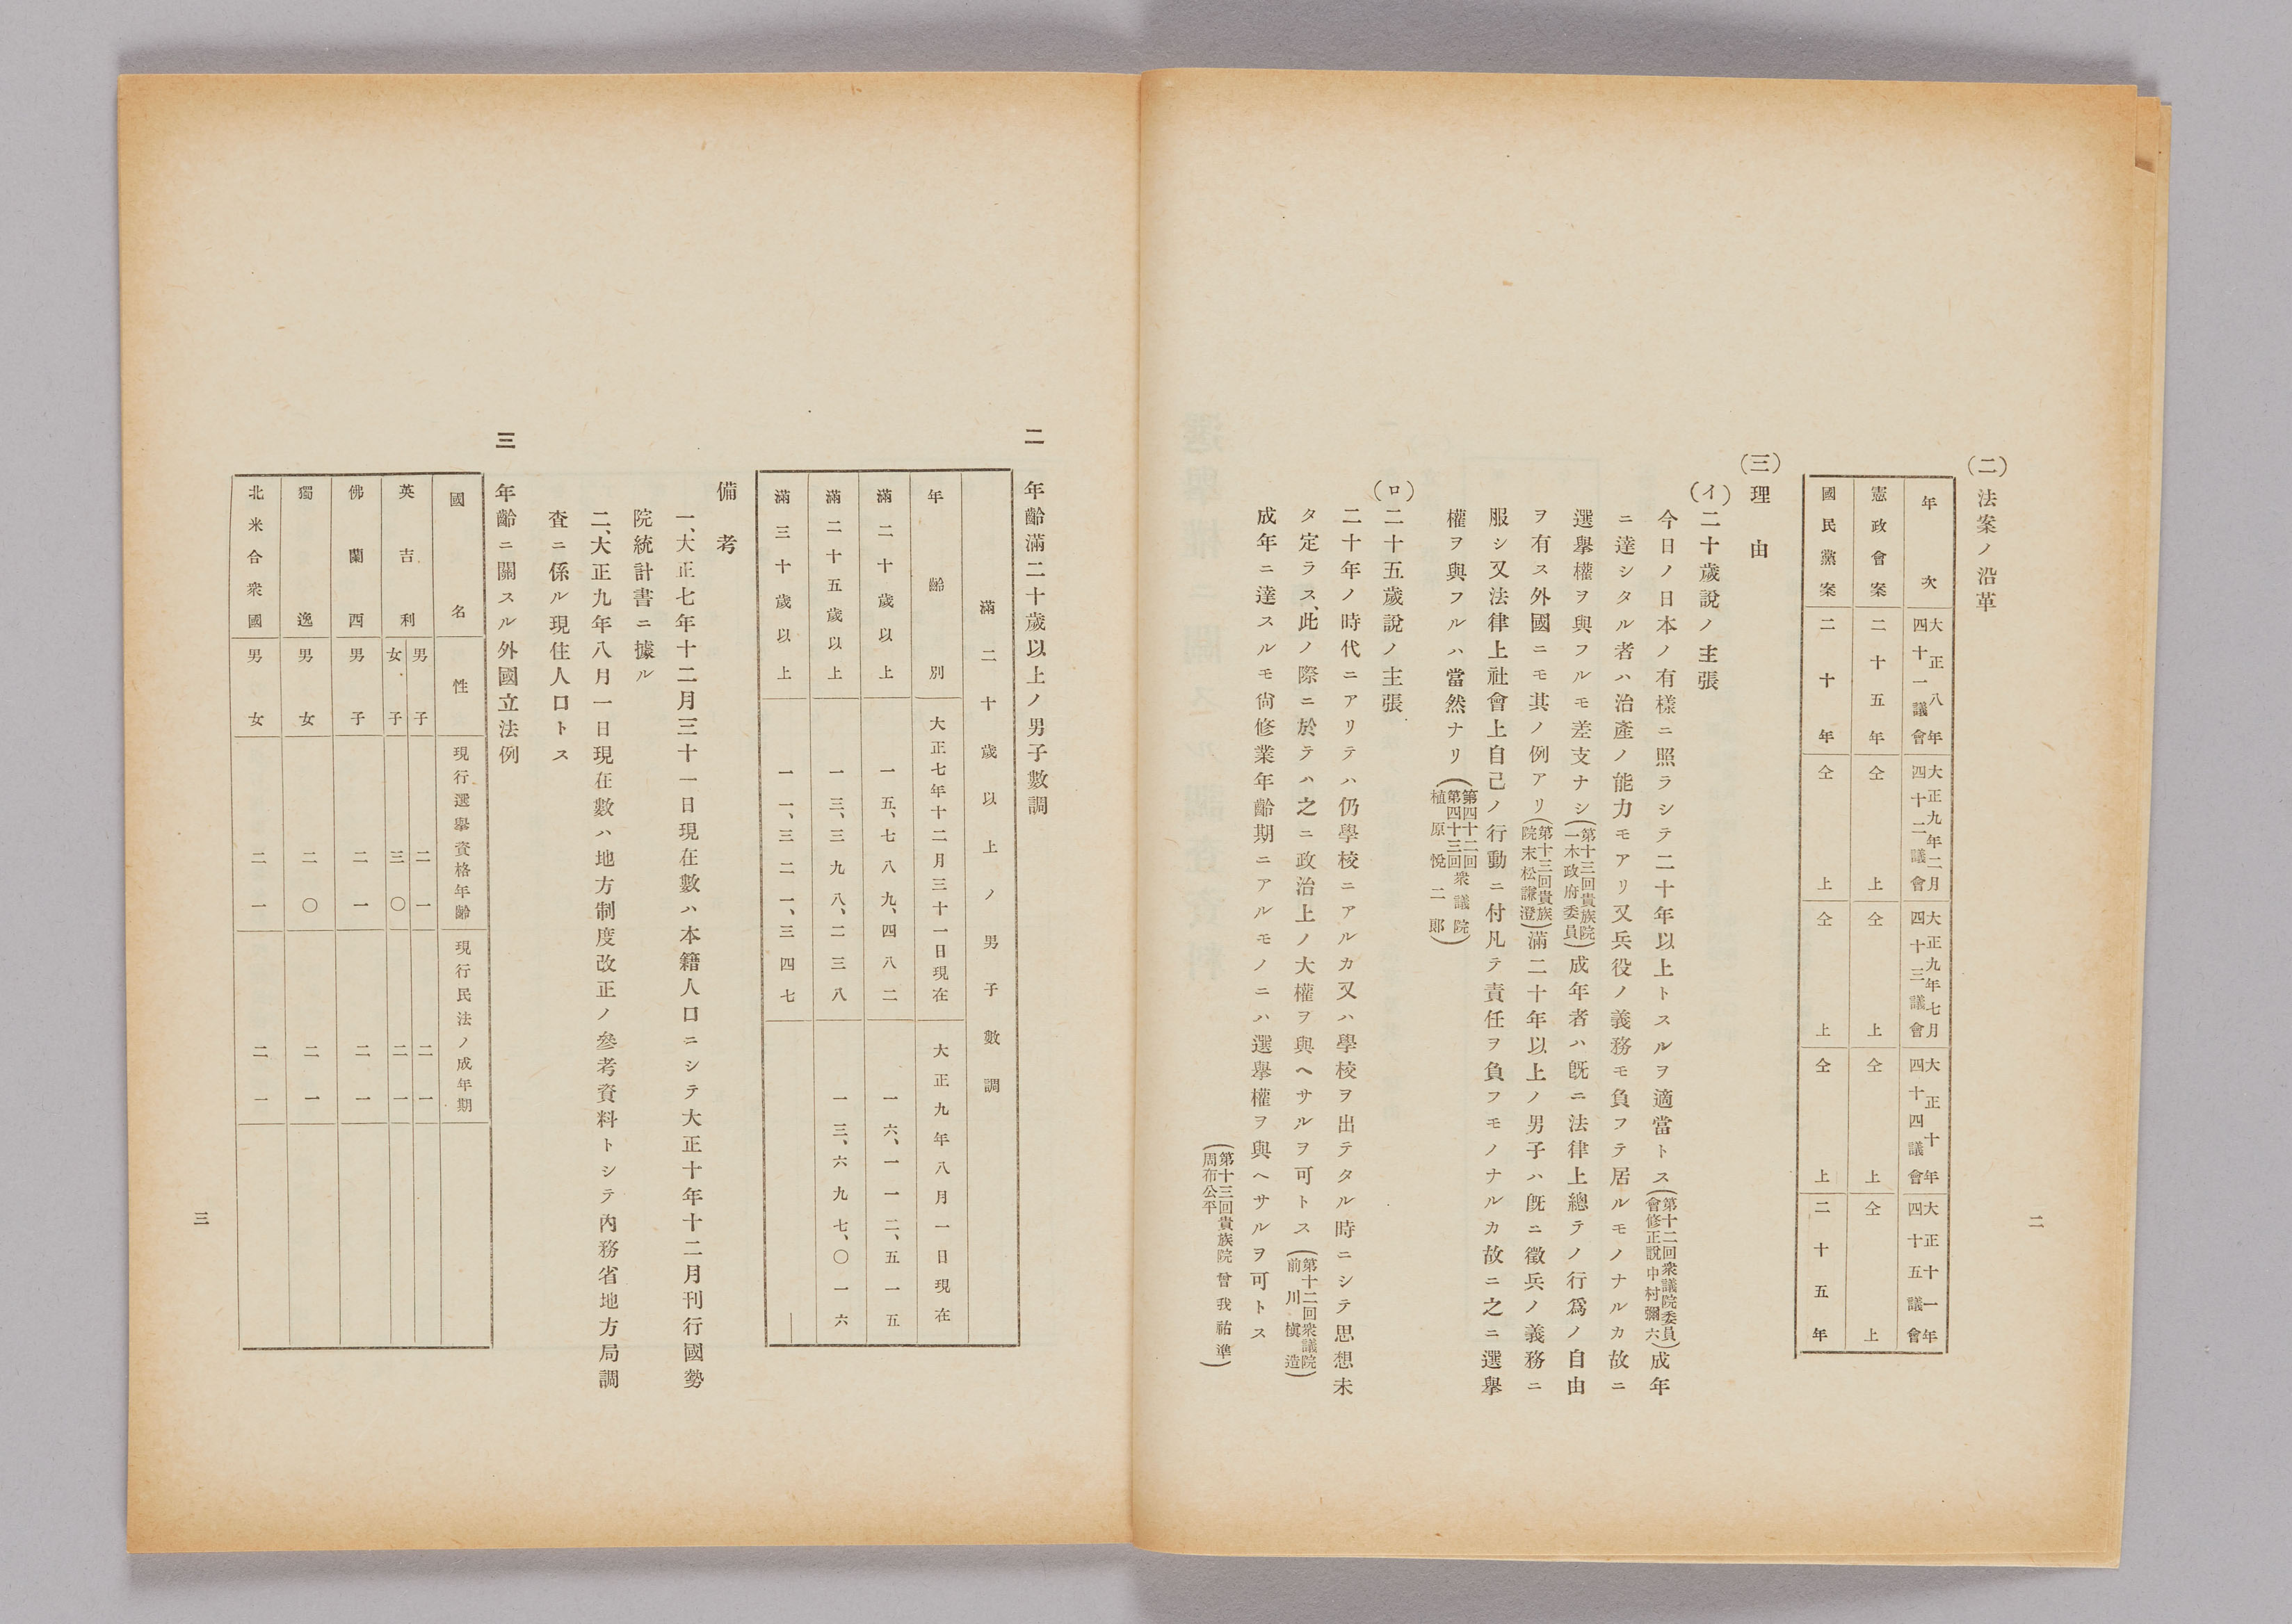 二
(二)法案ノ沿革
年次
大正八年四十一議會
大正九年二月四十二議會
大正九年七月四十三議會
大正十年四十四議會
大正十一年四十五議會
憲政會案 二十五年 仝上 仝上 仝上 仝上
國民黨案 二十年 仝上 仝上 仝上 二十五年
(三)理由
(イ)二十歲說ノ主張
今日ノ日本ノ有樣ニ照ラシテ二十年以上トスルヲ適當トス(第十二回衆議院委員會修正說中村彌六)成年
ニ達シタル者ハ治產ノ能力モアリ又兵役ノ義務モ負フテ居ルモノナルカ故ニ
選擧權ヲ與フルモ差支ナシ(第十三回貴族院一木政府委員)成年者ハ旣ニ法律上總テノ行爲ノ自由
ヲ有ス外國ニモ其ノ例アリ(第十三回貴族院末松謙澄)滿二十年以上ノ男子ハ旣ニ徵兵ノ義務ニ
服シ又法律上社會上自己ノ行動ニ付凡テ責任ヲ負フモノナルカ故ニ之ニ選擧
權ヲ與フルハ當然ナリ(第四十二回第四十三回衆議院植原悅二郞)
(ロ)二十五歲說ノ主張
二十年ノ時代ニアリテハ仍學校ニアルカ又ハ學校ヲ出テタル時ニシテ思想未
タ定ラス、此ノ際ニ於テハ之ニ政治上ノ大權ヲ與ヘサルヲ可トス(第十二回衆議院前川槇造)
成年ニ達スルモ尙修業年齡期ニアルモノニハ選擧權ヲ與ヘサルヲ可トス
(第十三回貴族院曾我祐準周布公平)
二 年齡滿二十歲以上ノ男子數調
滿二十歲以上ノ男子數調
年齡別 大正七年十二月三十一日現在 大正九年八月一日現在
滿二十歲以上 一五、七八九、四八二 一六、一一二、五一五
滿二十五歲以上 一三、三九八、二三八 一三、六九七、〇一六
滿三十歲以上 一一、三二一、三四七 ―
備考
一、大正七年十二月三十一日現在數ハ本籍人口ニシテ大正十年十二月刊行國勢
院統計書ニ據ル
二、大正九年八月一日現在數ハ地方制度改正ノ參考資料トシテ內務省地方局調
査ニ係ル現住人口トス
三 年齡ニ關スル外國立法例
國名 性 現行選擧資格年齡 現行民法ノ成年期
英吉利 男子 二一 二一
女子 三〇 二一
佛蘭西 男子 二一 二一
獨逸 男女 二〇 二一
北米合衆國 男女 二一 二一
三